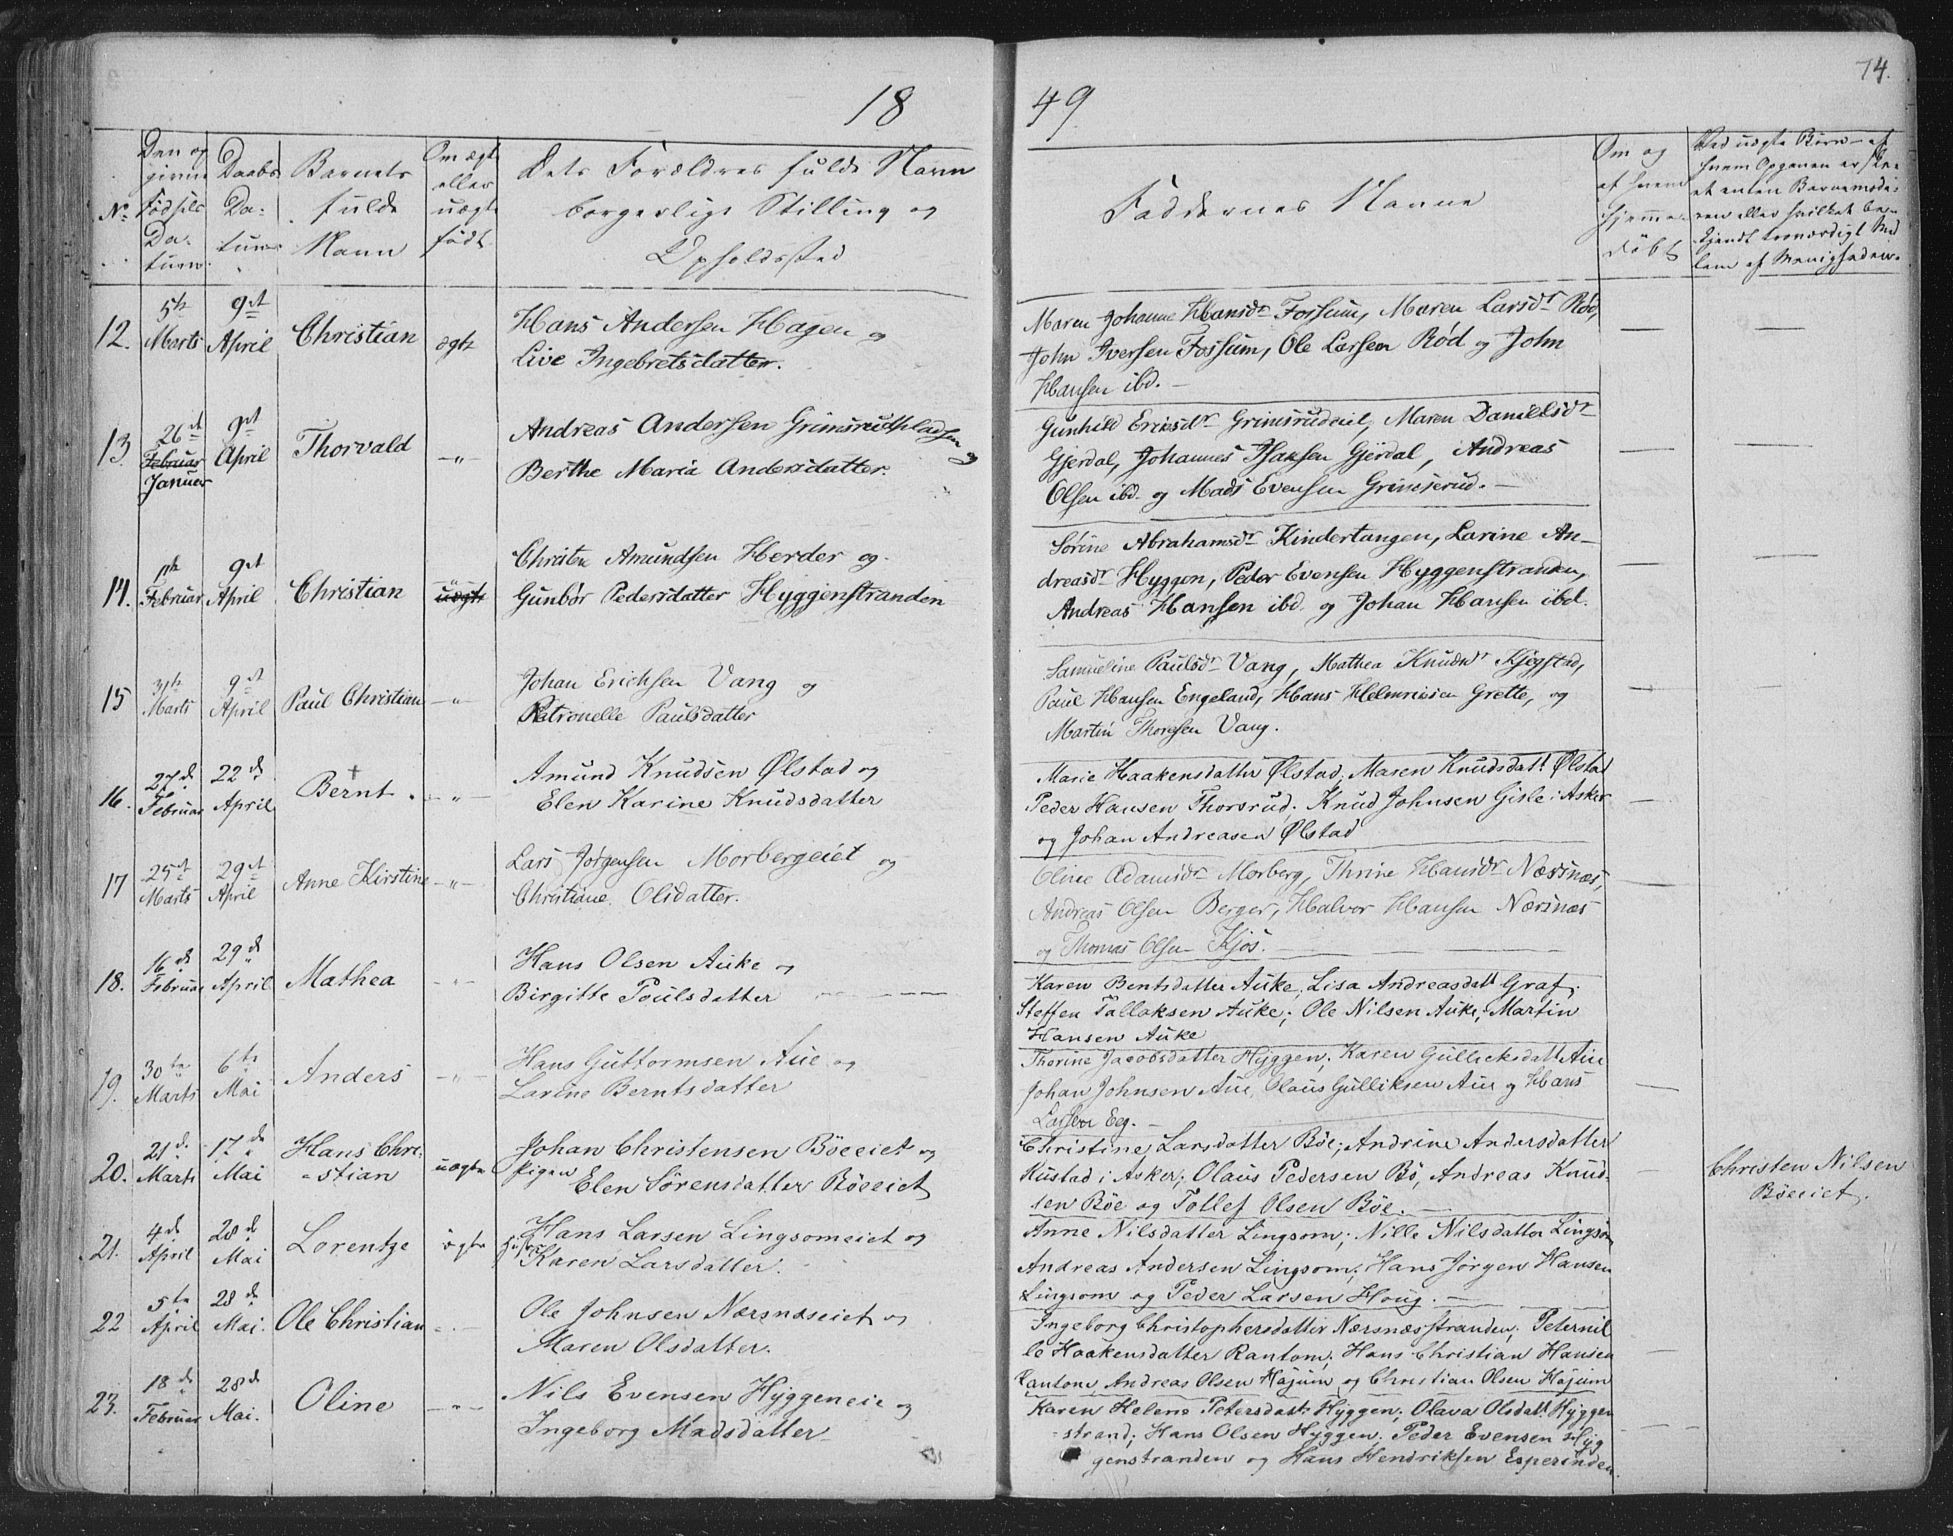 18
49
74.
No
Den op
givne
Fødsels
Da-
tum.
Daabs
Da-
tum
Barnets
fulde
Navn
Om ægte
eller
uægte
født.
Dets Forældres fulde Navn
borgerlige Stilling og
Opholdssted
Faddernes Navne
Om og
af hvem
hjemme-
døbt
Ved uægte Børn - af
hvem Opgaven er ske-
et enten Barnemode-
ren eller hvilket be-
kjendt troværdigt Med
lem af Menigheden.
12. 5te Marts 9de April Christian ægte
Hans Andersen Hagen og
Live Ingebretsdatter.
Maren Johanne Hansdr Fossum, Maren Larsdr Rød,
John Iversen Fossum, Ole Larsen Rød og John
Hansen ibd. —
13. 26de Februar Januar 9de April Thorvald —"—
Andreas Andersen Grimsrudpladsen og
Berthe Maria Andersdatter.
Gunhild Ericsdr Grimsrudeiet, Maren Danielsdr
Gjerdal, Johannes Isaksen Gjerdal, Andreas
Olsen ibd. og Mads Evensen Grimsrud. —
14. Februar 9de April Christian uægte
Christen Amundsen Herder og
Gunbør Pedersdatter Hyggenstranden
Sørine Abrahamsdr Kindertangen, Larine An-
dreasdr Hyggen, Peder Evensen Hyggenstranden,
Andreas Hansen ibd. og Johan Hansen ibd.
15 Marts 9de April Paul Christian —"—
Johan Erichsen Vang og
Petronelle Paulsdatter
Samueline Paulsdr Vang, Mathea Knudsdr Kjegstad,
Paul Hansen Engeland, Hans Helmriksen Grette, og
Martin Thoresen Vang.
16. 27de Februar 22de April Bernt. —"—
Amund Knudsen Ølstad og
Elen Karine Knudsdatter
Marie Haakensdatter Ølstad; Maren Knudsdatt Ølstad
Peder Hansen Thorsrud; Knud Johnsen Gisle i Asker
og Johan Andreasen Ølstad
17 25de Marts 29de April Anne Kirstine —"—
Lars Jørgensen Morbergeiet og
Christiane Olsdatter.
Oline Adamsdr Morberg, Thrine Hansdr Næsnæs,
Andreas Olsen Berger, Halvor Hansen Næsnæs
og Thomas Olsen Kjos.
18. 16de Februar 29de April Mathea —"—
Hans Olsen Auke og
Birgitte Poulsdatter
Karen Bentsdatter Auke; Lisa Andreasdatt Graf;
Steffen Tallaksen Auke; Ole Nilsen Auke; Martin
Hansen Auke
19. 30te Marts 6te Mai Anders —"—
Hans Guttormsen Aue og
Larine Berntsdatter
Thorine Jacobsdatter Hyggen; Karen Gulliksdatt Aue
Johan Johnsen Aue, Olaus Gulliksen Aue og Hans
Larsen Eeg. —
20. 21de Marts 17de Mai Hans Chri-
-stian uægte
Johan Christensen Böeeiet og
Pigen Elen Sörensdatter Böeeiet
Christine Larsdatter Böe; Andrine Andersdatter
Hustad i Asker; Olaus Pedersen Bö, Andreas Knud-
sen Böe og Tollef Olsen Böe. —
Christen Nilsen
Böeeiet.
21. 4de April 28de Mai Lorentze ægte
Hans Larsen Lingsomeiet og
Karen Larsdatter.
Anne Nilsdatter Lingsom; Nille Nilsdatter Lingsom
Andreas Andersen Lingsom; Hans Jörgen Hansen
Lingsom og Peder Larsen Houg. —
22 5te April 28de Mai. Ole Christian —"—
Ole Johnsen Nærsnæseiet og
Maren Olsdatter.
Ingeborg Christophersdatter Nærsnæsstranden; Peternil
le Haakensdatter Rantom; Hans Christian Hansen
Rantom, Andreas Olsen Højum og Christian Olsen Højum
23. 18de Februar 28de Mai. Oline —"—
Nils Evensen Hyggeneie og
Ingeborg Madsdatter
Karen Helene Petersdatt. Hyggen; Olava Olsdatt. Hyggen
-strand; Hans Olsen Hyggen. Peder Evensen Hyg
genstranden og Hans Hendriksen Esperinden.